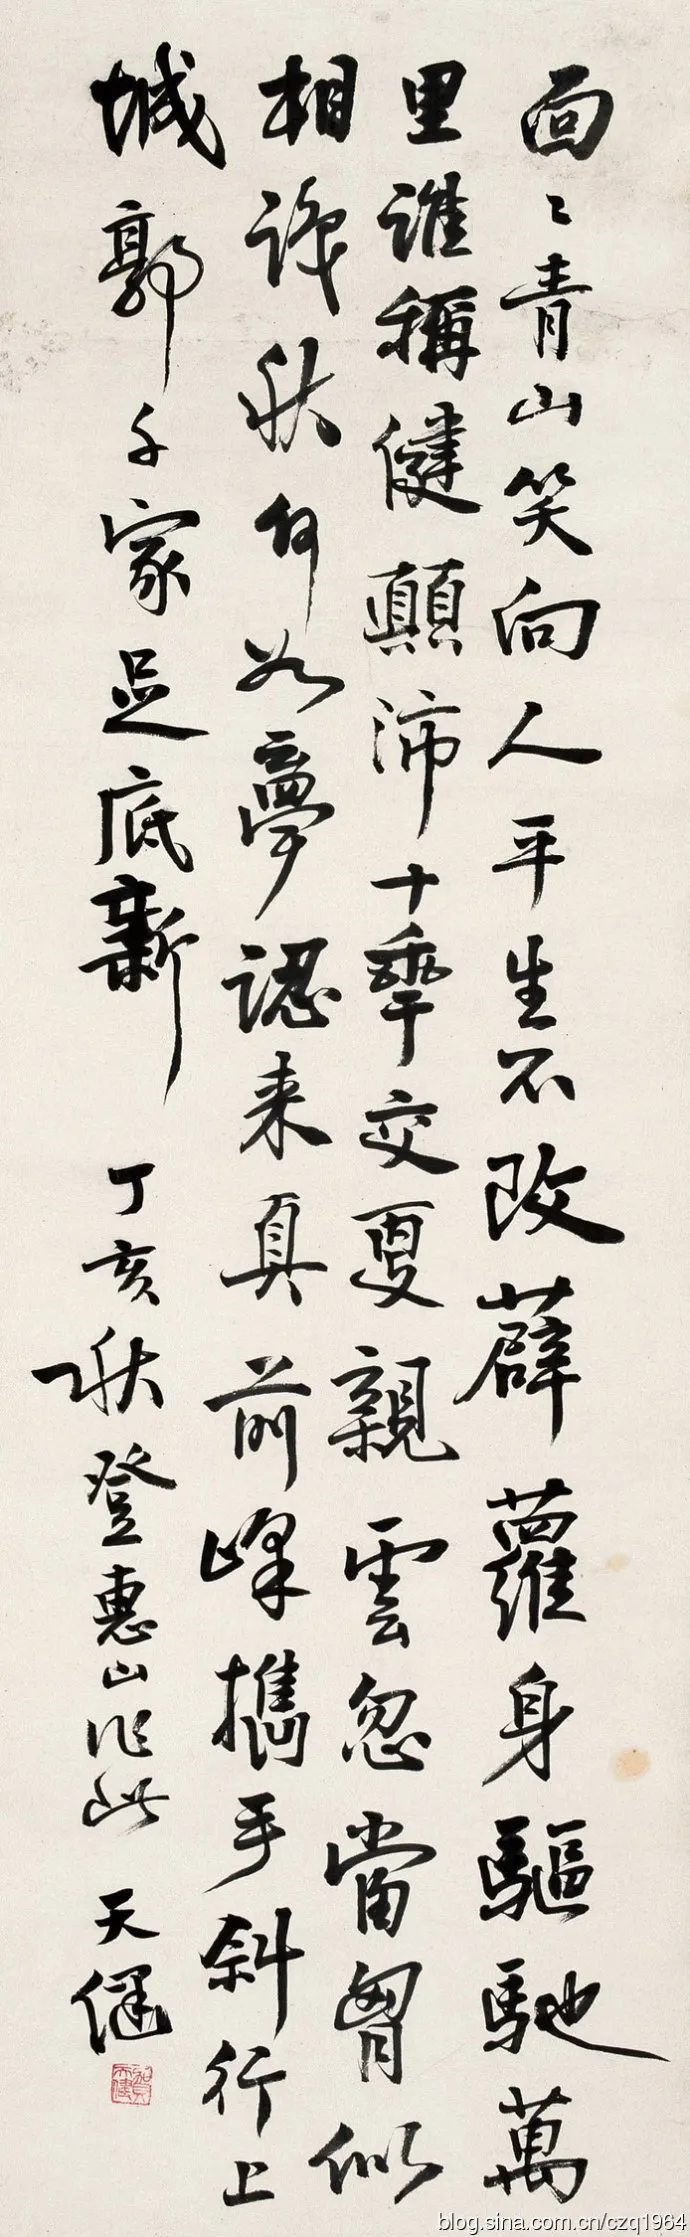 面〻青山笑向人平生不改薜蘿身驅馳萬
里誰稱健顛沛十年交更親雲忽當胷似
相識秋何如夢認来真前峰攜手斜行上
城郭千家足底新
丁亥秋登惠山作此 天健
賀天健
blog.sina.com.cn/czq1964